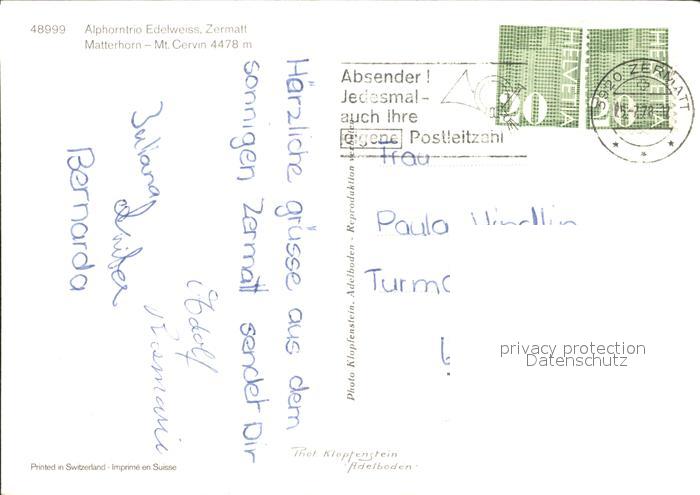 48999 Alphorntrio Edelweiss, Zermatt
Matterhorn – Mt. Cervin 4478 m
Absender !
Jedesmal –
auch Ihre
eigene Postleitzahl
HELVETIA
20
HELVETIA
20
3920 ZERMATT
Härzliche grüsse aus dem
sonnigen Zermatt sendet Dir
Adolf
Rosmarie
Juliana
Bernarda
Frau
Paula
Photo Klopfenstein, Adelboden - Reproduktion verboten
privacy protection
Datenschutz
Phot. Klopfenstein
Adelboden
Printed in Switzerland - Imprimé en Suisse